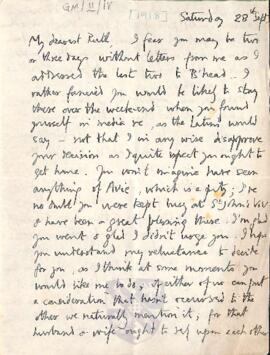 GM/II/18
[1918]
Saturday 28th Sept
My dearest Ruth, I fear you may be two
or three days without letters from me as I
addressed the last two to B'head. I
rather fancied you would be likely to stay
there over the weekend when you found
yourself in media re, as the Latins would
say – not that I in any wise disapprove
your decision as I quite expect you ought to
get home. You won't imagine have seen
anything of Avie, which is a pity; I've
no doubt you were kept busy at St John's Vic
& have been a great blessing those. I'm glad
you went & glad I didn't urge you. I hope
you understand my reluctance to decide
for you, as I think at some moments you
would like me to do; if either of us can put
a consideration that hasn't occurred to the
other we naturally mention it; for that
husband & wife ought to upon each other